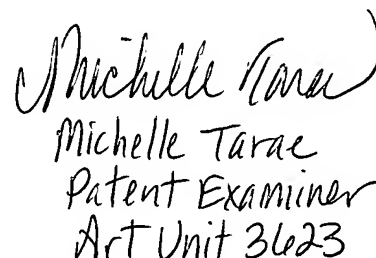 Michelle Tarae
Michelle Tarae
Patent Examiner
Art Unit 3623